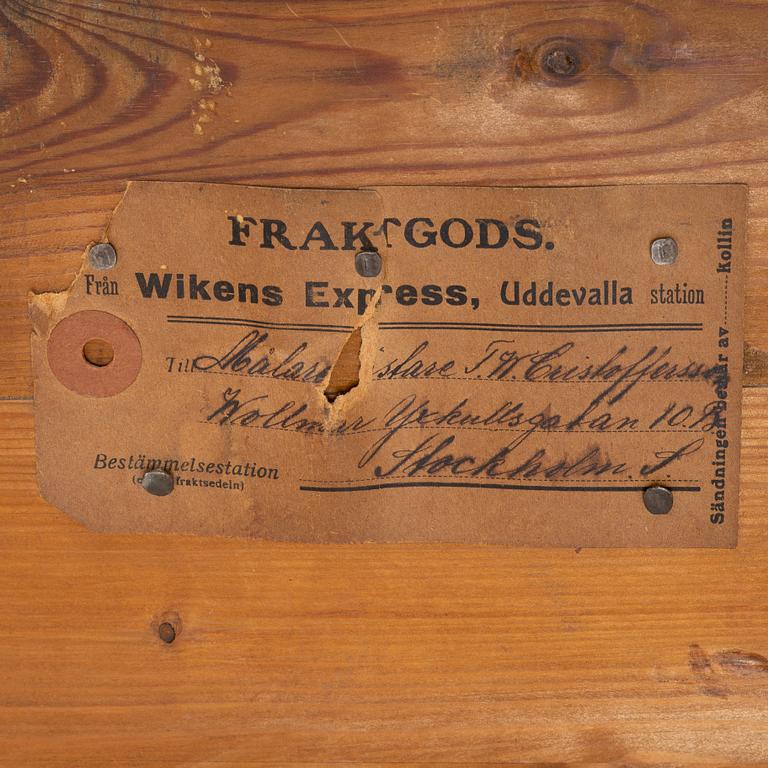 FRAKTGODS.
Från Wikens Express, Uddevalla station
Till Målar istare T.W. Cristoffersson
Wollmar Yxkullsgatan 10.B.
Bestämmelsestation Stockholm. S
fraktsedeln)
Sändningen består av kollin